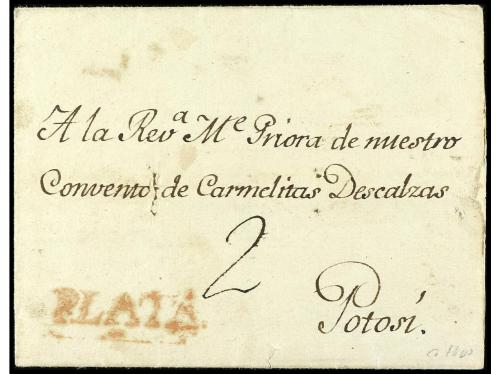 A la Rev.ª Mᵉ Priora de nuestro
Convento de Carmelitas Descalzas
2
PLATA.
Potosí.